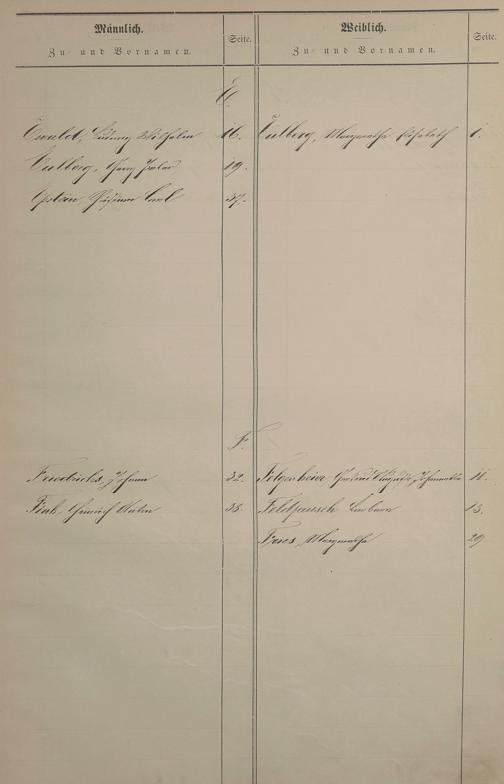 Männlich.
Zu- und Vornamen.
Seite.
Weiblich.
Zu- und Vornamen.
Seite.
E.
Ewald, Wilhelm 16.
Eulberg, Margarethe Elisabeth 1.
Eulberg, Georg 19.
Epstein, Carl 37.
F.
Friedrichs, Johann 32.
Felgenheier Johannette 11.
Fink, Heinrich Anton 38.
Feldhausch Barbara 13.
Fries, Margarethe 29